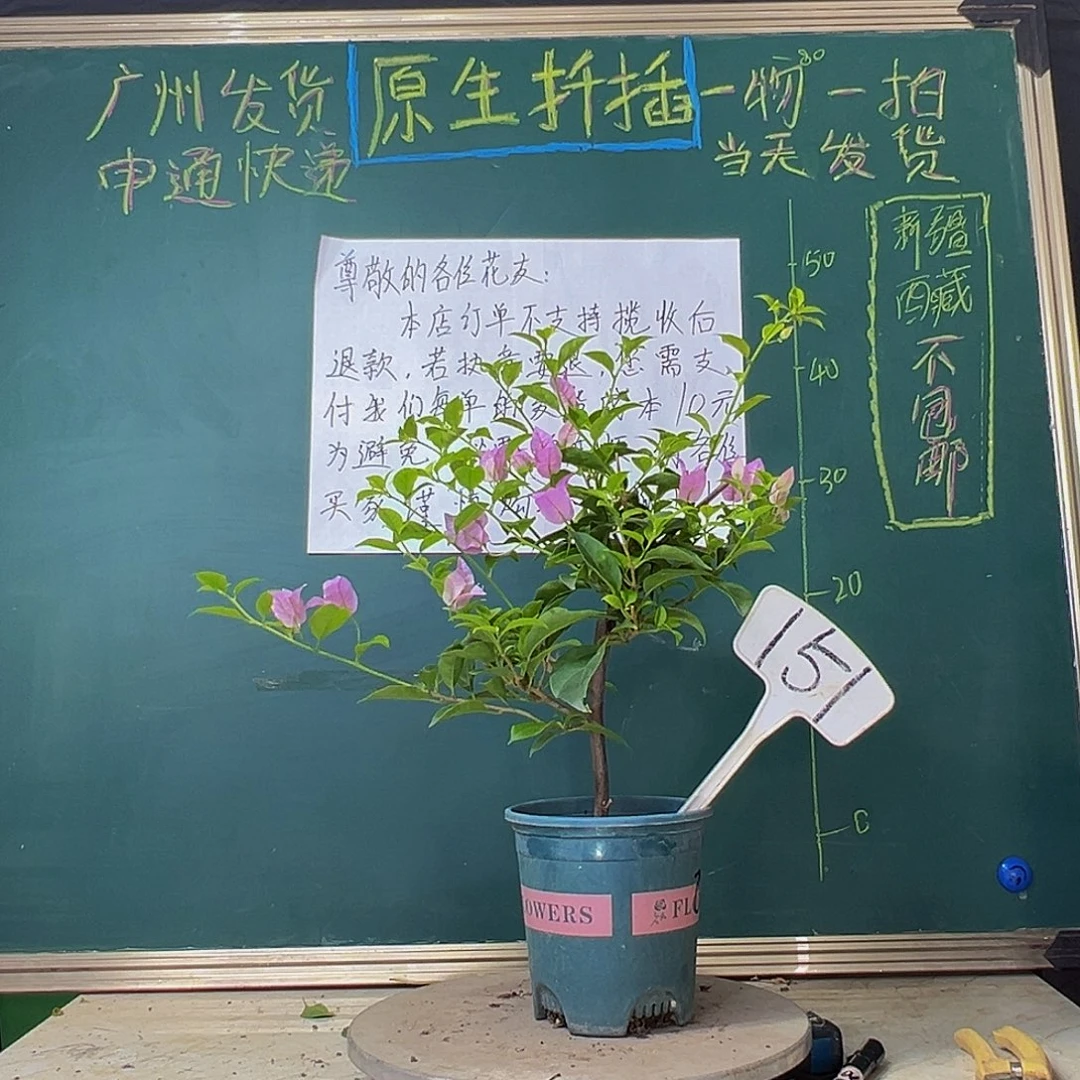 广州发货
原生扦插
一物一拍
申通快递
当天发货
新疆
西藏
不
包
邮
尊敬的各位花友:
本店订单不支持揽收后
退款,若执意要退,您需支
付我们每单 本10元
为避免 各位
买家
50
40
30
20
0
151
OWERS
FL